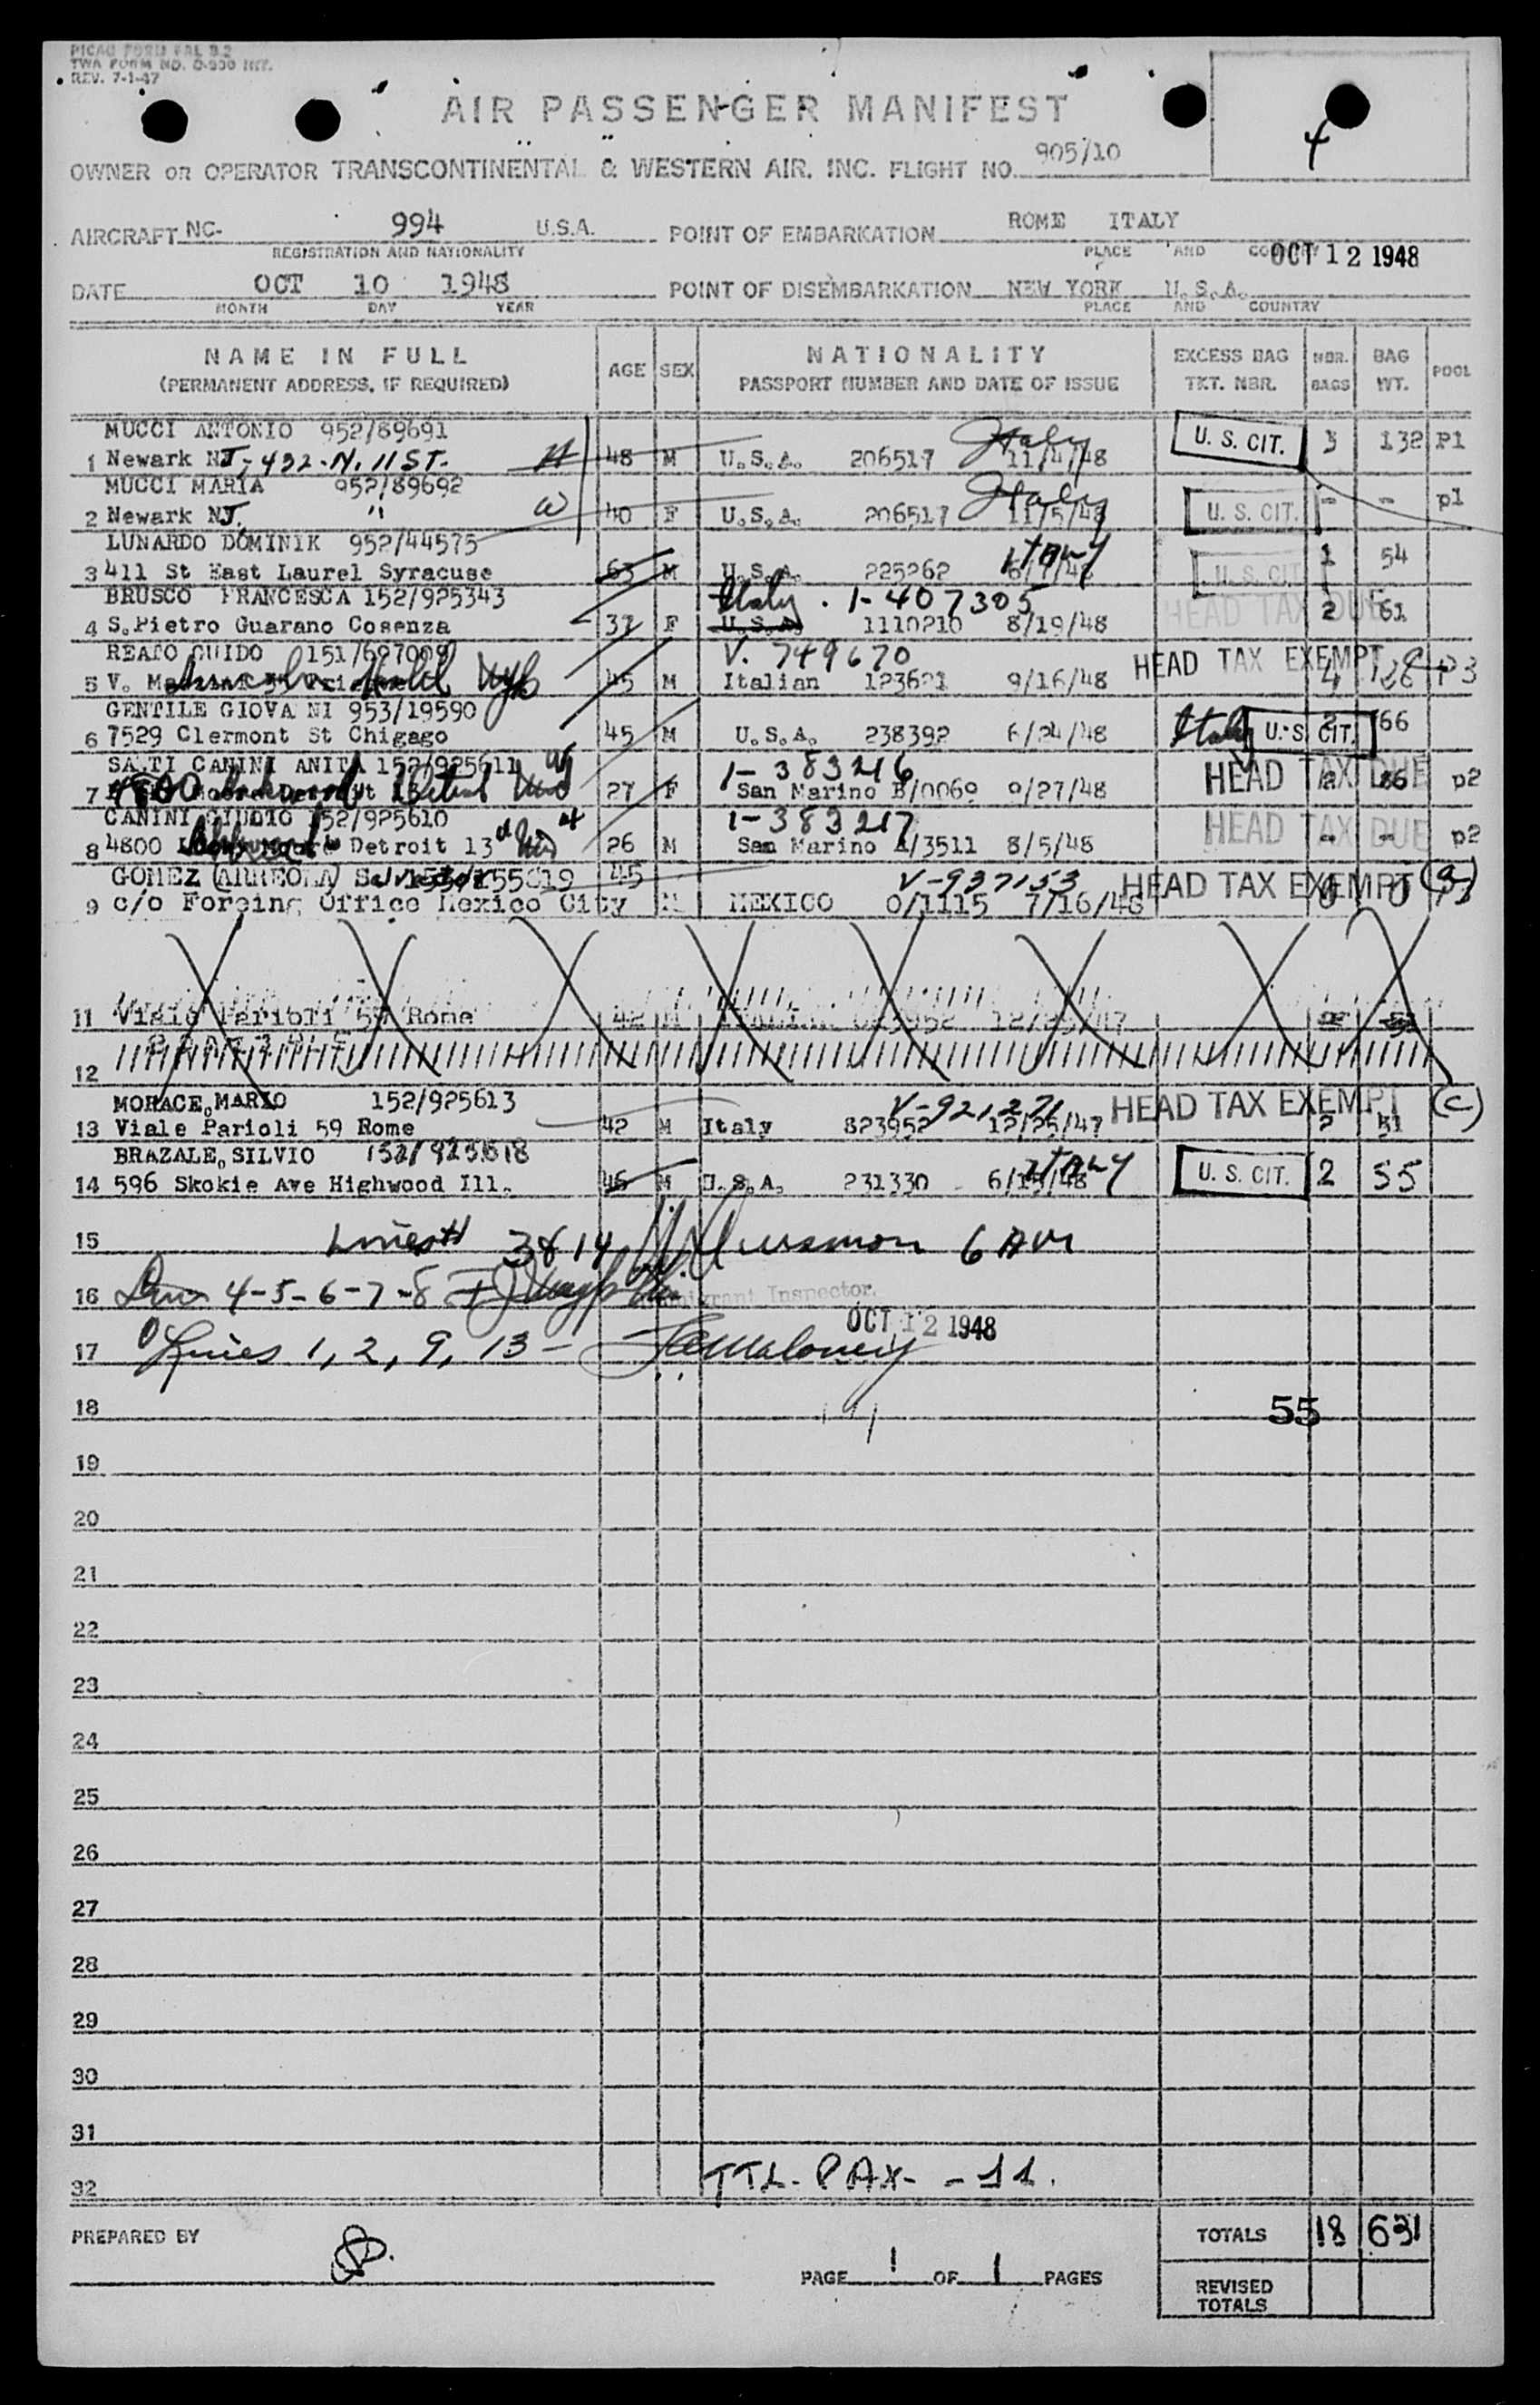 PICAO FORM FAL 9.2
TWA FORM NO. O-900 INT.
REV. 7-1-47
AIR PASSENGER MANIFEST
4
OWNER OR OPERATOR TRANSCONTINENTAL & WESTERN AIR, INC. FLIGHT NO. 905/10
AIRCRAFT NC- 994 U.S.A. POINT OF EMBARKATION ROME ITALY
REGISTRATION AND NATIONALITY PLACE AND COUNTRY
OCT 12 1948
DATE OCT 10 1948 POINT OF DISEMBARKATION NEW YORK U.S.A.
MONTH DAY YEAR PLACE AND COUNTRY
NAME IN FULL AGE SEX NATIONALITY EXCESS BAG NBR. BAG POOL
(PERMANENT ADDRESS, IF REQUIRED) PASSPORT NUMBER AND DATE OF ISSUE TKT. NBR. BAGS WT.
MUCCI ANTONIO 952/89691 Italy
1 Newark NJ - 432 - N. 11 ST. H 48 M U.S.A. 206517 11/4/48 U. S. CIT. 3 132 P1
MUCCI MARIA 952/89692 Italy
2 Newark NJ. " W 40 F U.S.A. 206517 11/5/48 U. S. CIT. - - p1
LUNARDO DOMINIK 952/44575 ITALY
3 411 St East Laurel Syracuse 63 M U.S.A. 225262 U. S. CIT 1 54
BRUSCO FRANCESCA 152/925343 Italy . 1-407305
4 S.Pietro Guarano Cosenza 37 F U.S.A. 1110210 8/19/48 HEAD TAX DUE 2 61
REATO GUIDO V. 749670
5 V. 45 M Italian 123621 9/16/48 HEAD TAX EXEMPT 4 P3
GENTILE GIOVA NI 953/19590
6 7529 Clermont St Chigago 45 M U.S.A. 238392 6/24/48 Italy U. S. CIT. 2 66
SAỊTI CANINI ANITA 152/925611 W 1-383216
7 4800 27 F San Marino B/0069 9/27/48 HEAD TAX DUE 2 86 p2
CANINI GIUDIO 152/925610 H 1-383217
8 4800 Detroit 13 26 M San Marino A/3511 8/5/48 HEAD TAX DUE - - p2
GOMEZ (ARREOLA) 45 V-937153
9 c/o Foreing Office Mexico City M MEXICO 0/1115 7/16/48 HEAD TAX EXEMPT
11 Viale Parioli 59 Rome 42 M 823952 12/25/47
12
MORACE, MARIO 152/925613 V-921271
13 Viale Parioli 59 Rome 42 M Italy 823952 12/25/47 HEAD TAX EXEMPT 2 51 (C)
BRAZALE, SILVIO 152/925618 ITALY
14 596 Skokie Ave Highwood Ill. 46 M U.S.A. 231330 U. S. CIT. 2 55
15 Lines 3 & 14 6 AM
16 4-5-6-7-8 Immigrant Inspector.
OCT 12 1948
17 Lines 1, 2, 9, 13 -
18 55
19
20
21
22
23
24
25
26
27
28
29
30
31
32 TTL- PAX- - 11.
PREPARED BY TOTALS 18 631
PAGE 1 OF 1 PAGES REVISED TOTALS